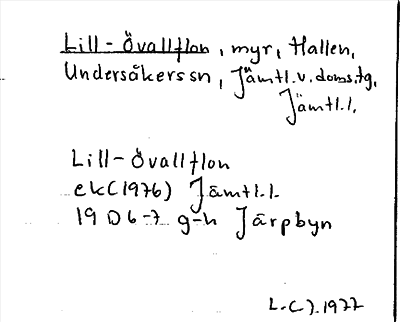 Lill-Övallflon, myr, Hallen,
Undersåkers sn, Jämtl.v.doms.tg,
Jämtl.l.
Lill-Övallflon
ek(1976) Jämtl.l.
19 D 6-7 g-h Järpbyn
L.C J. 1977